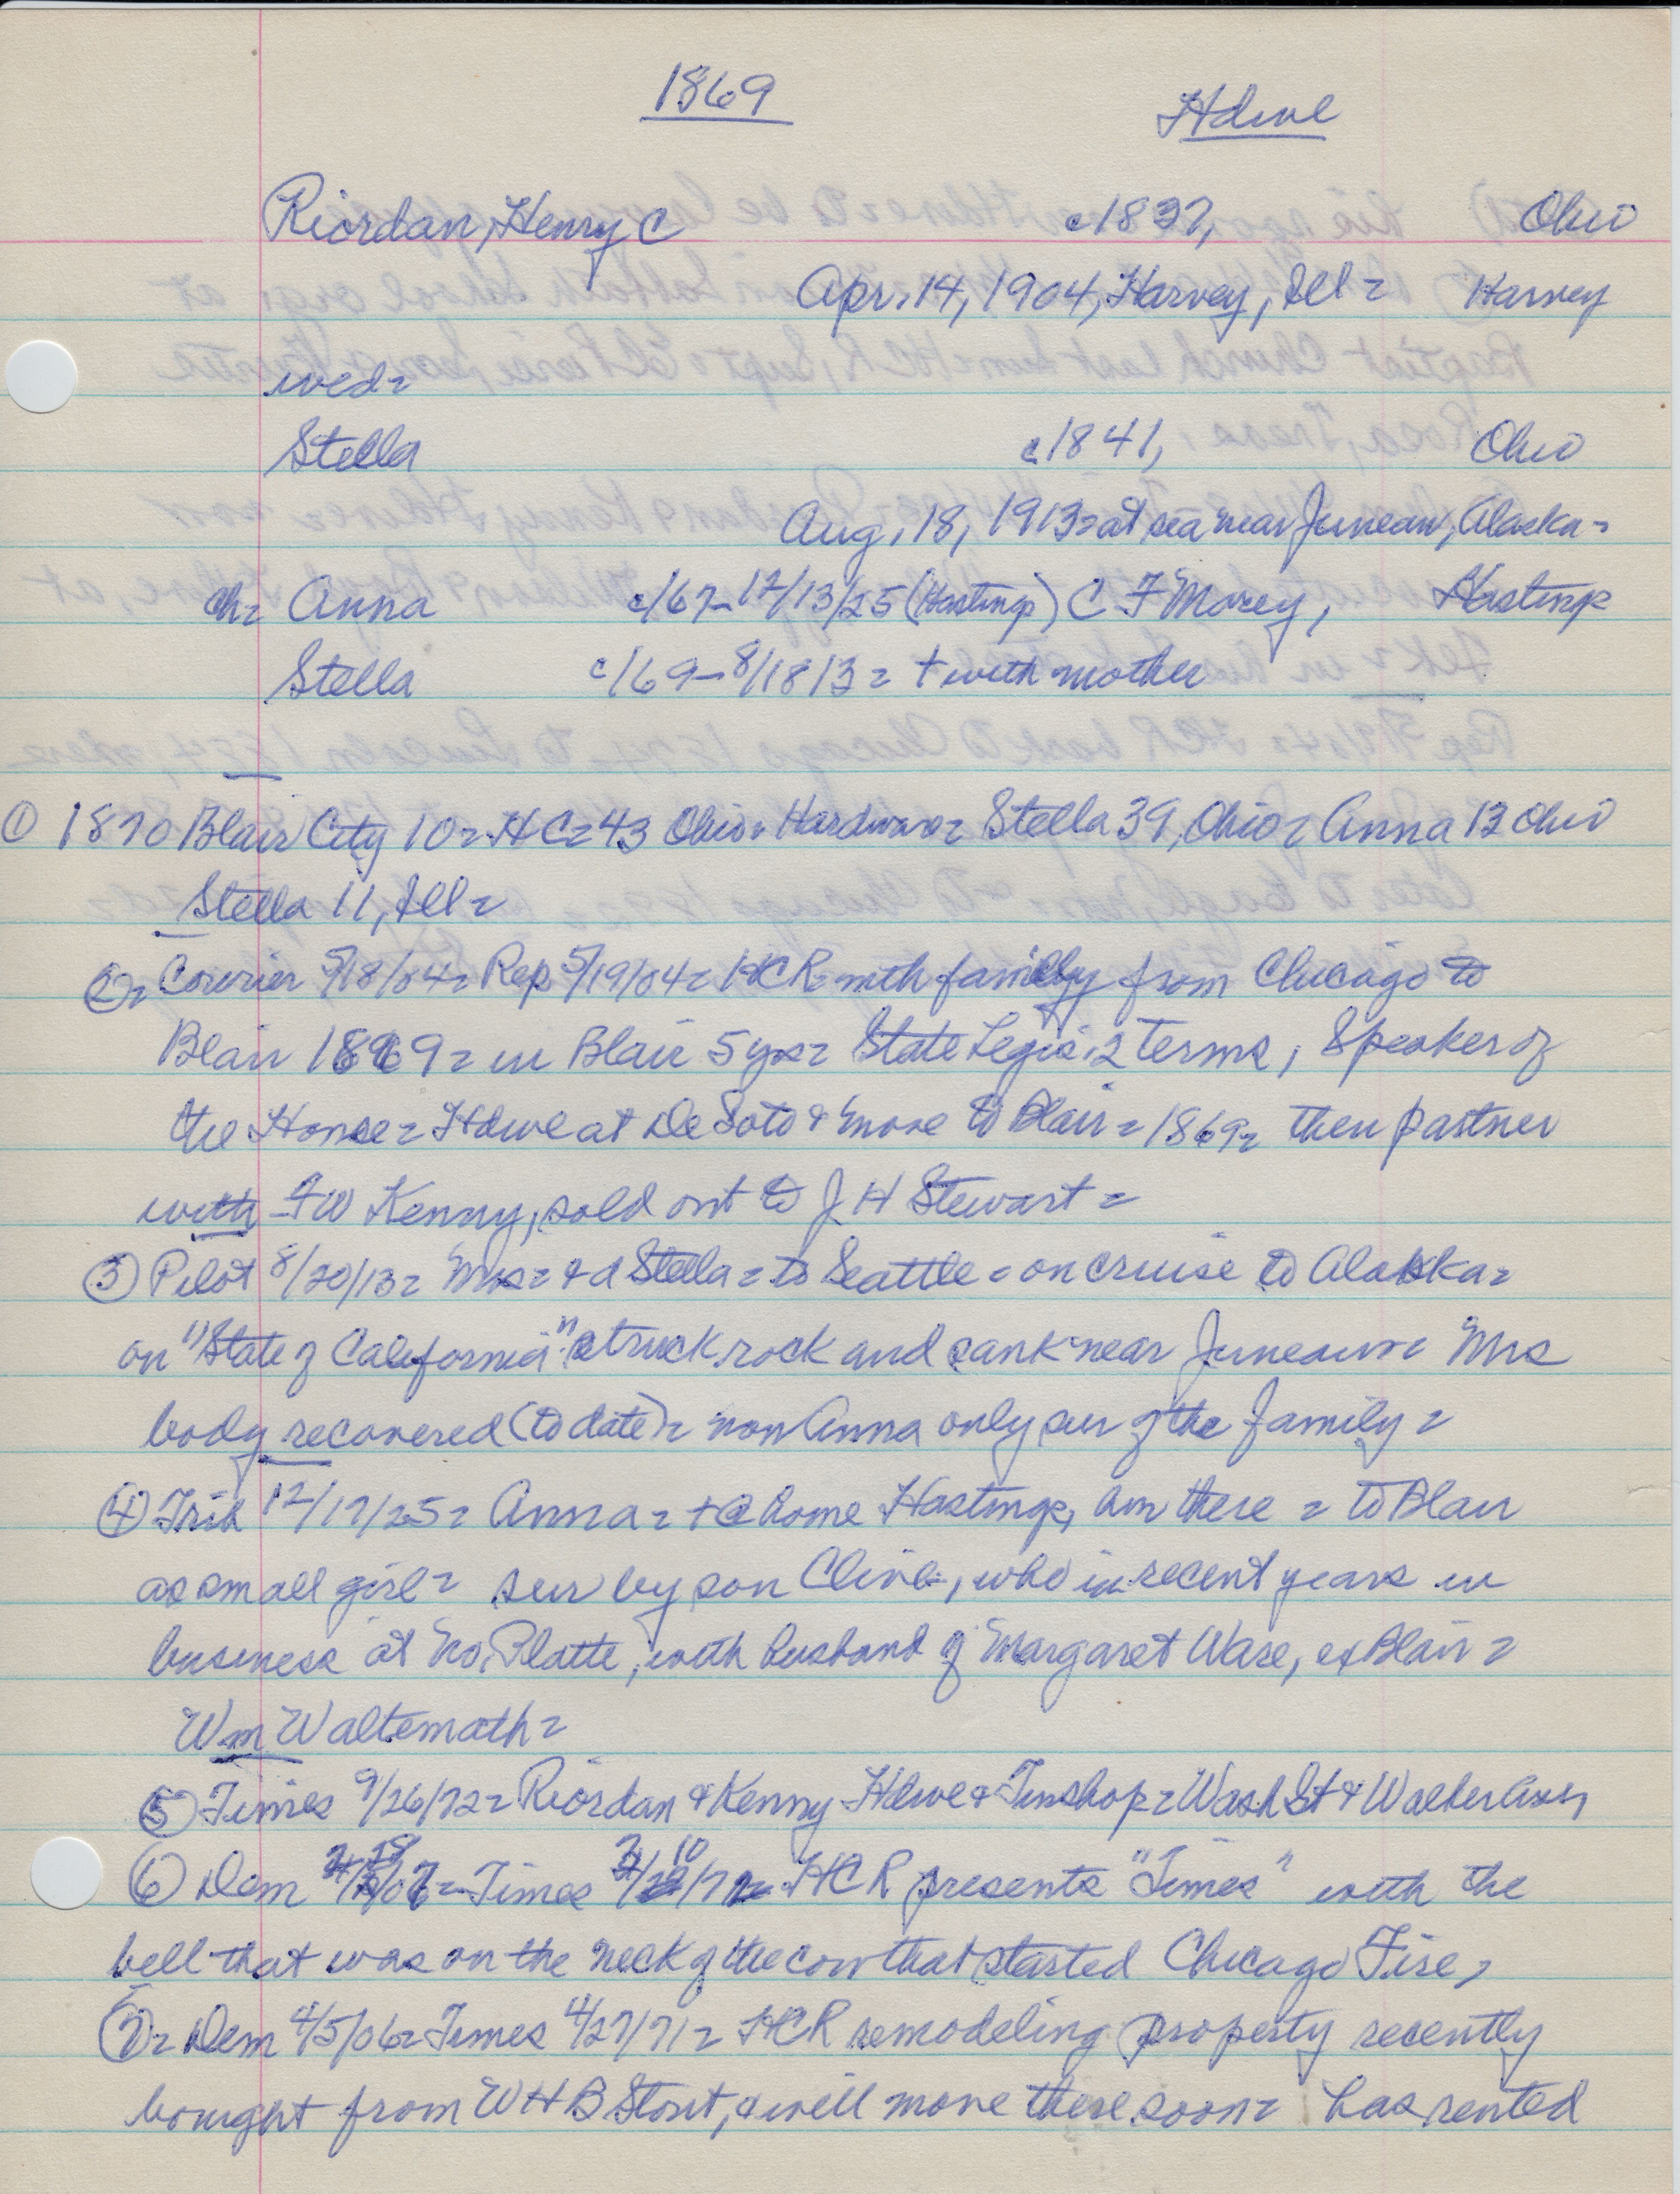 1869 Hdwe
Riordan, Henry C c1837, Ohio
Apr. 14, 1904, Harvey, Ill = Harvey
wed=
Stella c1841, Ohio
Aug, 18, 1913= at sea near Juneau, Alaska=
ch= Anna c/67-12/13/25 (Hastings) C F Morey, Hastings
Stella c/69-8/18 13= + with mother
① 1870 Blair City 10= H C= 43 Ohio= Hardware= Stella 39, Ohio= Anna 13 Ohio
Stella 11, Ill=
②= Courier 5/18/04= Rep 5/19/04= HCR= with family from Chicago to
Blair 1869= in Blair 5 yrs= State Legis. 2 terms, Speaker of
the House= Hdwe at De Soto & move to Blair= 1869= then partner
with FW Kenny, sold out to J H Stewart=
③ Pilot 8/20/13= Mrs= & d Stella= to Seattle= on cruise to Alaska=
on "State of California" struck rock and sank near Juneau= Mrs
body recovered (to date)= now Anna only sur of the family=
④ Trib 12/17/25= Anna= + @ home Hastings, bur there= to Blair
as small girl= sur by son Cline, who in recent years in
business at No. Platte, with husband of Margaret Ware, ex Blair=
Wm Waltemath=
⑤ Times 9/26/72= Riordan & Kenny Hdwe & Tinshop= Wash St & Walker Ave,
⑥ Dem Times HCR presents "Times" with the
bell that was on the neck of the cow that started Chicago Fire,
⑦= Dem 4/5/06= Times 4/27/71= HCR remodeling property recently
bought from W H B Stout, & will move there soon= has rented